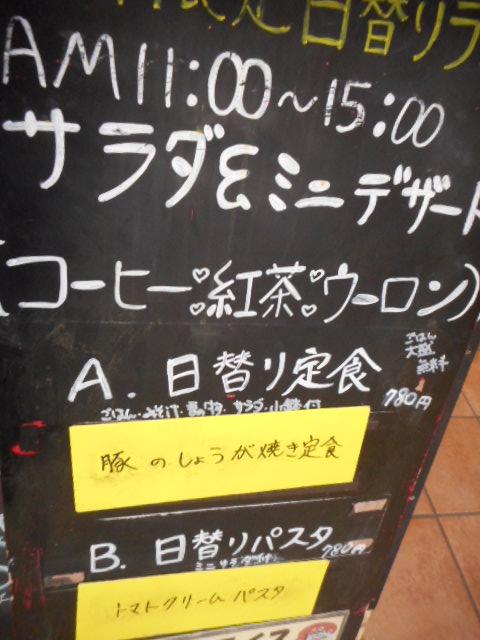 限定日替りラ
AM11:00~15:00
サラダ&ミニデザート
(コーヒー・紅茶・ウーロン)
A.日替り定食
ごはん
大盛
無料
780円
サラダ・小鉢付
豚のしょうが焼き定食
B.日替りパスタ
780円
ミニサラダ付
トマトクリームパスタ